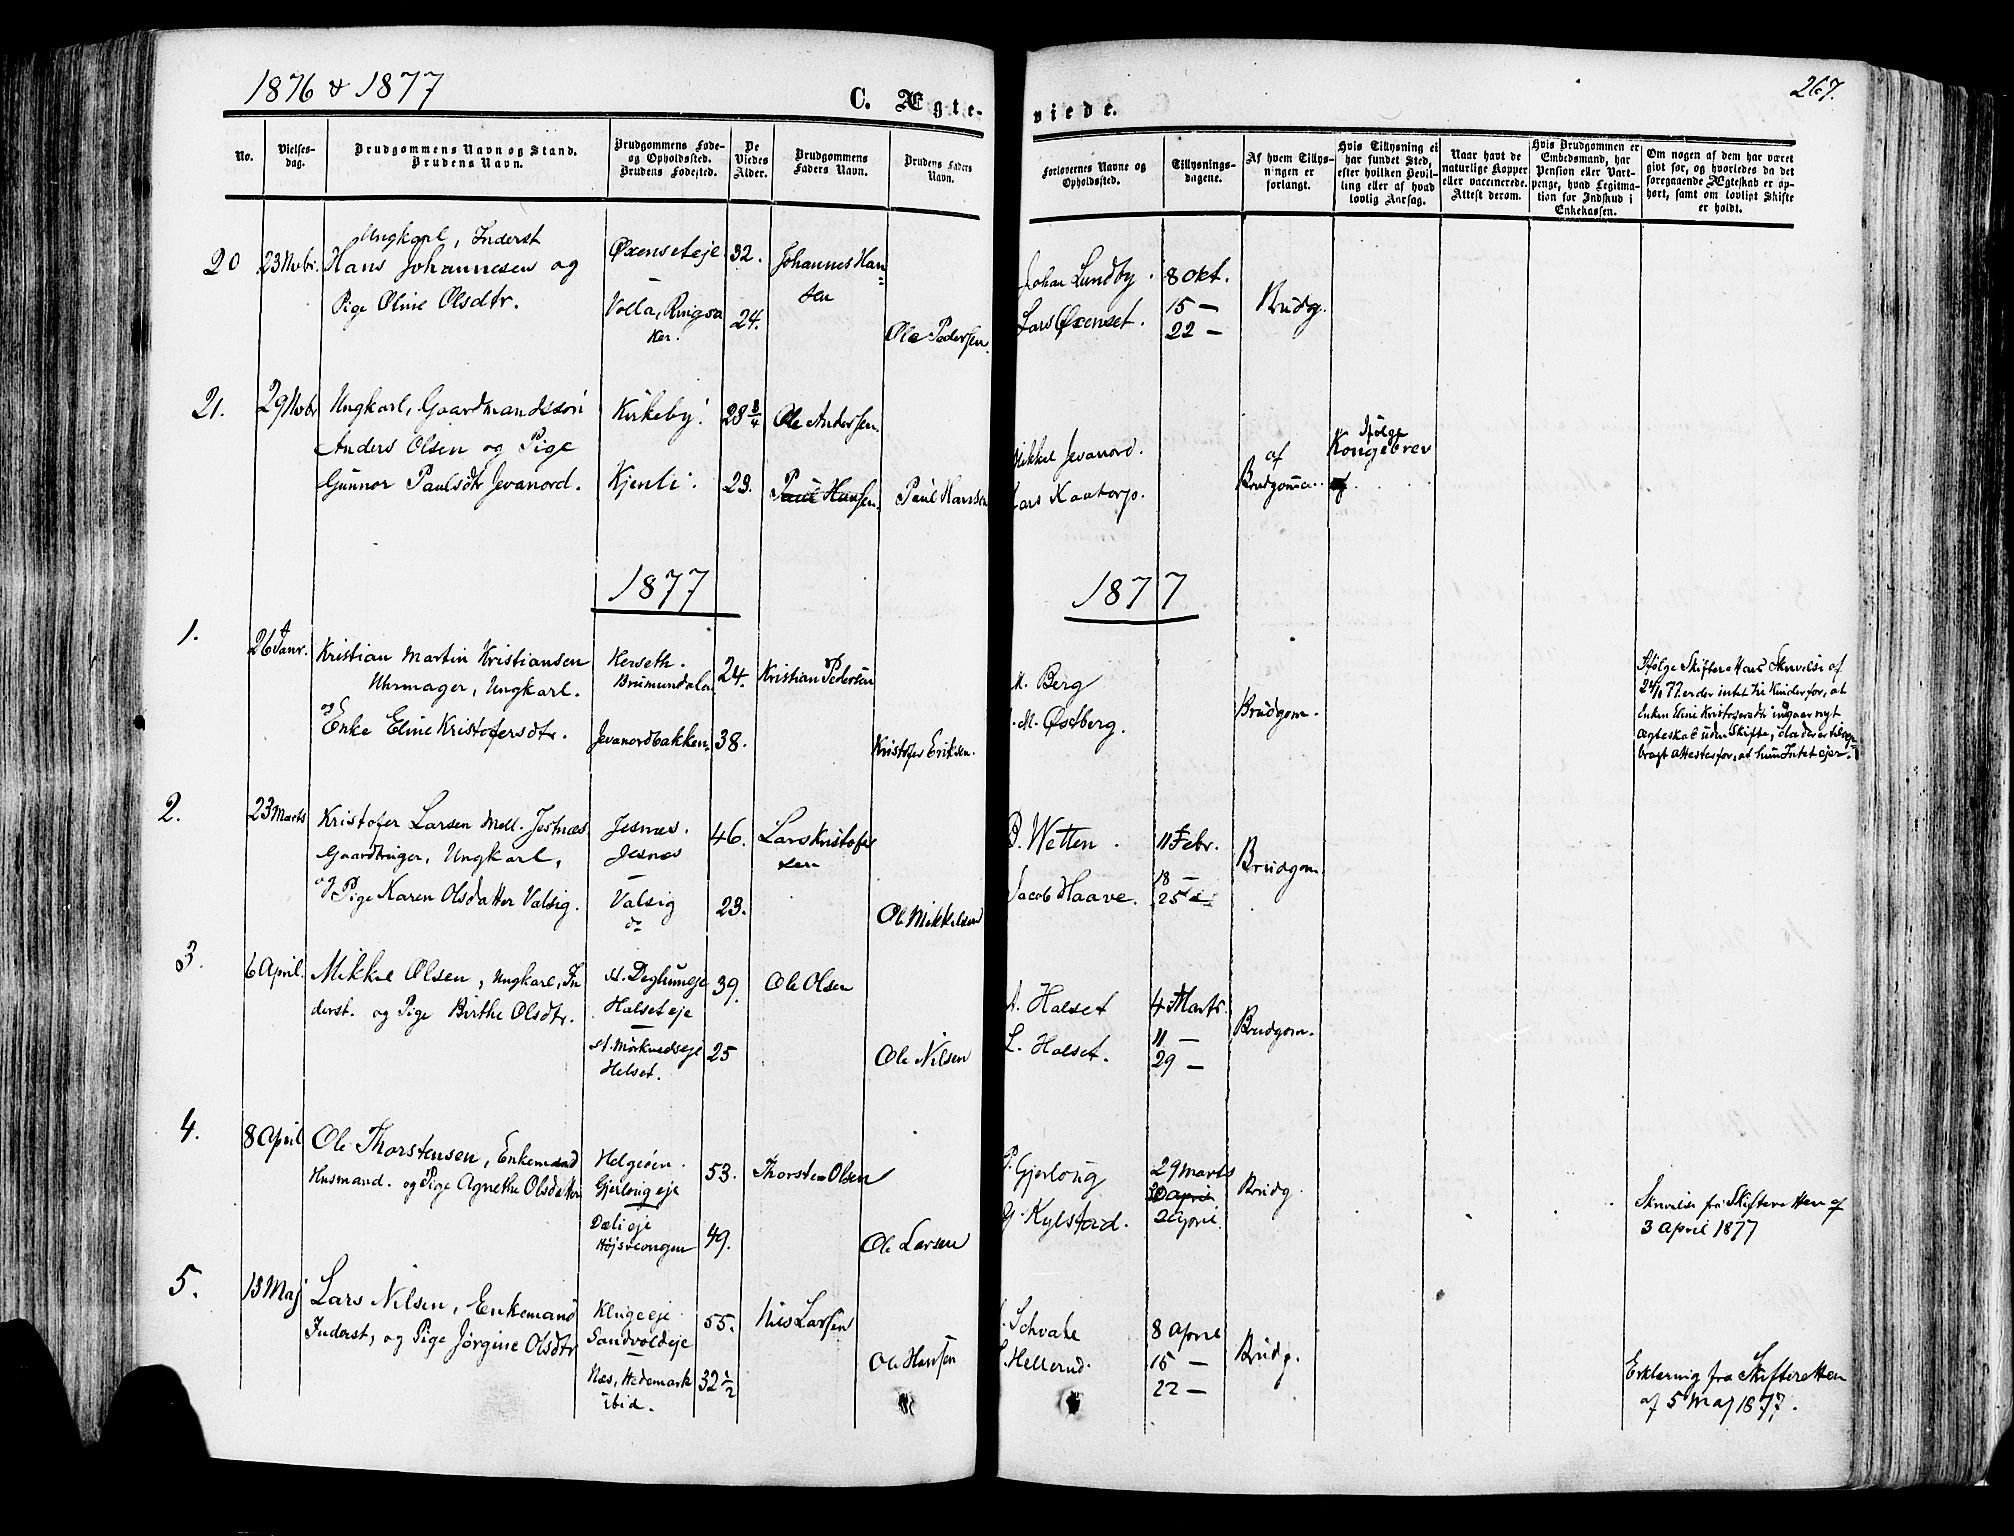 1876 & 1877
C. Ægte-
viede.
267.
No.
Vielses-
dag.
Brudgommens Navn og Stand.
Brudens Navn.
Brudgommens Føde-
og Opholdssted.
Brudens Fødested.
De
Viedes
Alder.
Brudgommens
Faders Navn.
Brudens Faders
Navn.
Forlovernes Navne og
Opholdssted.
Tillysnings-
dagene.
Af hvem Tillys-
ningen er
forlangt.
Hvis Tillysning ei
har fundet Sted,
efter hvilken Bevil-
ling eller af hvad
lovlig Aarsag.
Naar havt de
naturlige Kopper
eller vaccinerede.
Attest derom.
Hvis Brudgommen er
Embedsmand, har
Pension eller Vart-
penge, hvad Legitma-
tion for Indskud i
Enkekassen.
Om nogen af dem har været
gift før, og hvorledes da det
foregaaende Ægteskab er op-
hørt, samt om lovligt Skifte
er holdt.
20
23 Nvbr.
Ungkarl, Inderst
Hans Johannesen og
Pige Oline Olsdtr.
Øxenseteje
Volla, Ringsa
ker.
32.
24.
Johannes Han=
sen
Ole Pedersen.
Johan Lundby.
Lars Øxenset.
8 Okt.
15 —
22 —
Brudg.
21.
29 Nvbr
Ungkarl, Gaardmandssøn
Anders Olsen og Pige
Gunnor Paulsdtr Jevanord.
Kirkeby.
Kjenli.
28 3/4
23.
Ole Andersen.
Paul Hansen.
Paul Hansen
Mikkel Jevanord.
Lars Kaatorp.
af
Brudgommen.
Ifølge
Kongebrev
1877
1877
1.
26 Janr.
Kristian Martin Kristiansen
Uhrmager, Ungkarl.
og
Enke Eline Kristofersdtr.
Herseth.
Brumundalen
Jevanordbakken
24.
38.
Kristian Pedersen
Kristofer Eriksen.
M. Berg
M. Østberg.
Brudgom.
Ifølge Skifterettens Skrivelse af
24/1 77. er der intet til Hinder for, at
Enken Eline Kristofersdtr indgaar nyt
Ægteskab uden Skifte, da der er tilveje-
bragt Attester for, at hun Intet ejer.
2.
23 Marts
Kristofer Larsen Mell. Jesnæs
Gaardbruger, Ungkarl,
og Pige Karen Olsdatter Valsig.
Jesnæs.
Jesnæs
Valsig
do
46.
23.
Lars Kristofer
sen
Ole Mikkelsen
B. Wetten.
Jacob Haave.
11 Febr.
18 —
25 —
Brudgom.
3.
6 April.
Mikkel Olsen, Ungkarl, In
derst. og Pige Birthe Olsdtr.
N. Deglumeje
Halset eje
N. Mørkvedseje
Helset.
39.
25
Ole Olsen
Ole Nilsen
A. Halset
L. Halset.
4 Marts.
11 —
29 —
Brudgom.
4.
8 April
Ole Thorstensen, Enkemand
Husmand. og Pige Agnethe Olsdatter
Helgeøen.
Gjerlougeje
Dæli eje
Højsveongen
53.
49.
Thorsten Olsen
Ole Larsen
P. Gjerloug
G. Kylstad.
29 Marts
30 April
2 April.
Brudg.
Skrivelse fra Skifteretten af
3 April 1877
5.
13 Maj
Lars Nilsen, Enkemand
Inderst, og Pige Jørgine Olsdtr
Klugeeje
Sandvoldeje
Næs, Hedemark
ibid.
55.
32 1/2
Nils Larsen
Ole Hansen
Schvabe
Hellerud.
8 April
15 —
22 —
Brudg.
Erklæring fra Skifteretten
af 5 Maj 1877.